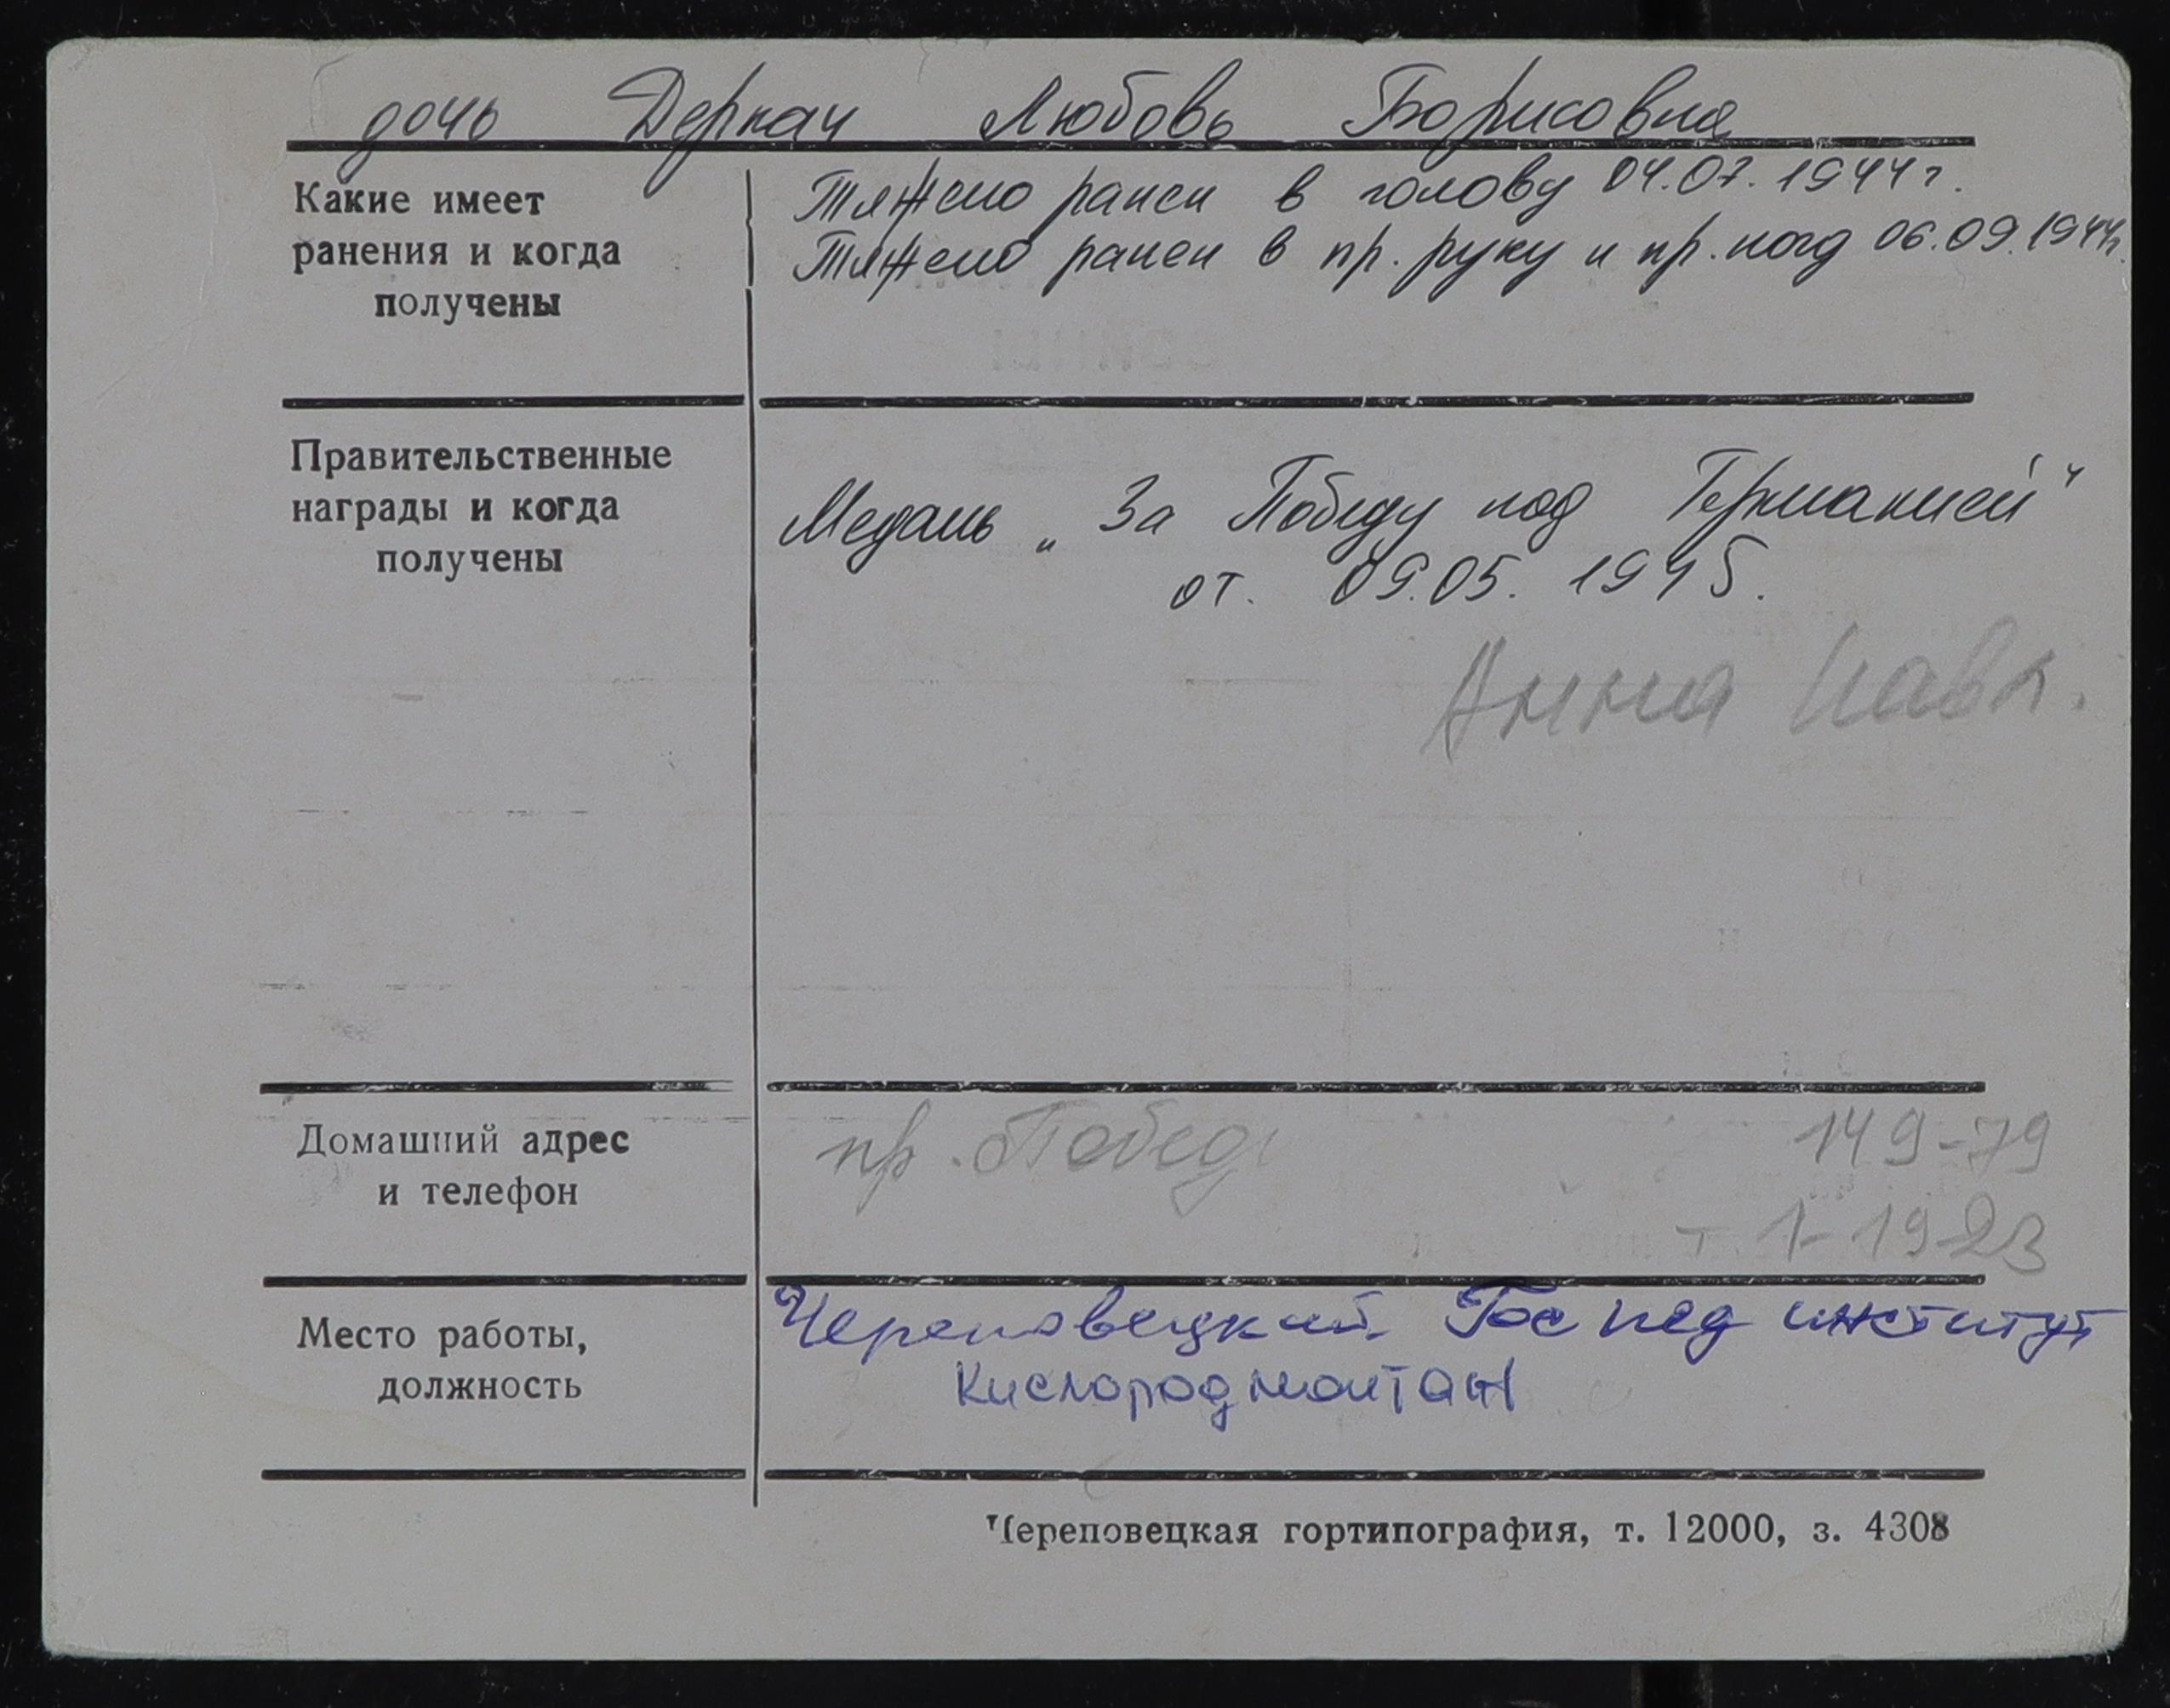 дочь Деркач Любовь Борисовна
Какие имеет
ранения и когда
получены
Тяжело ранен в голову 04.07.1944 г.
Тяжело ранен в пр. руку и пр. ногу 06.09.1944г.
Правительственные
награды и когда
получены
Медаль „За Победу над Германией"
от. 09.05.1945.
Анна Павл.
Домашний адрес
и телефон
пр. Побед
149-79
т. 1-19-23
Место работы,
должность
Череповецкий Гос пед институт
Кислородмонтаж
Череповецкая гортипография, т. 12000, з. 4308